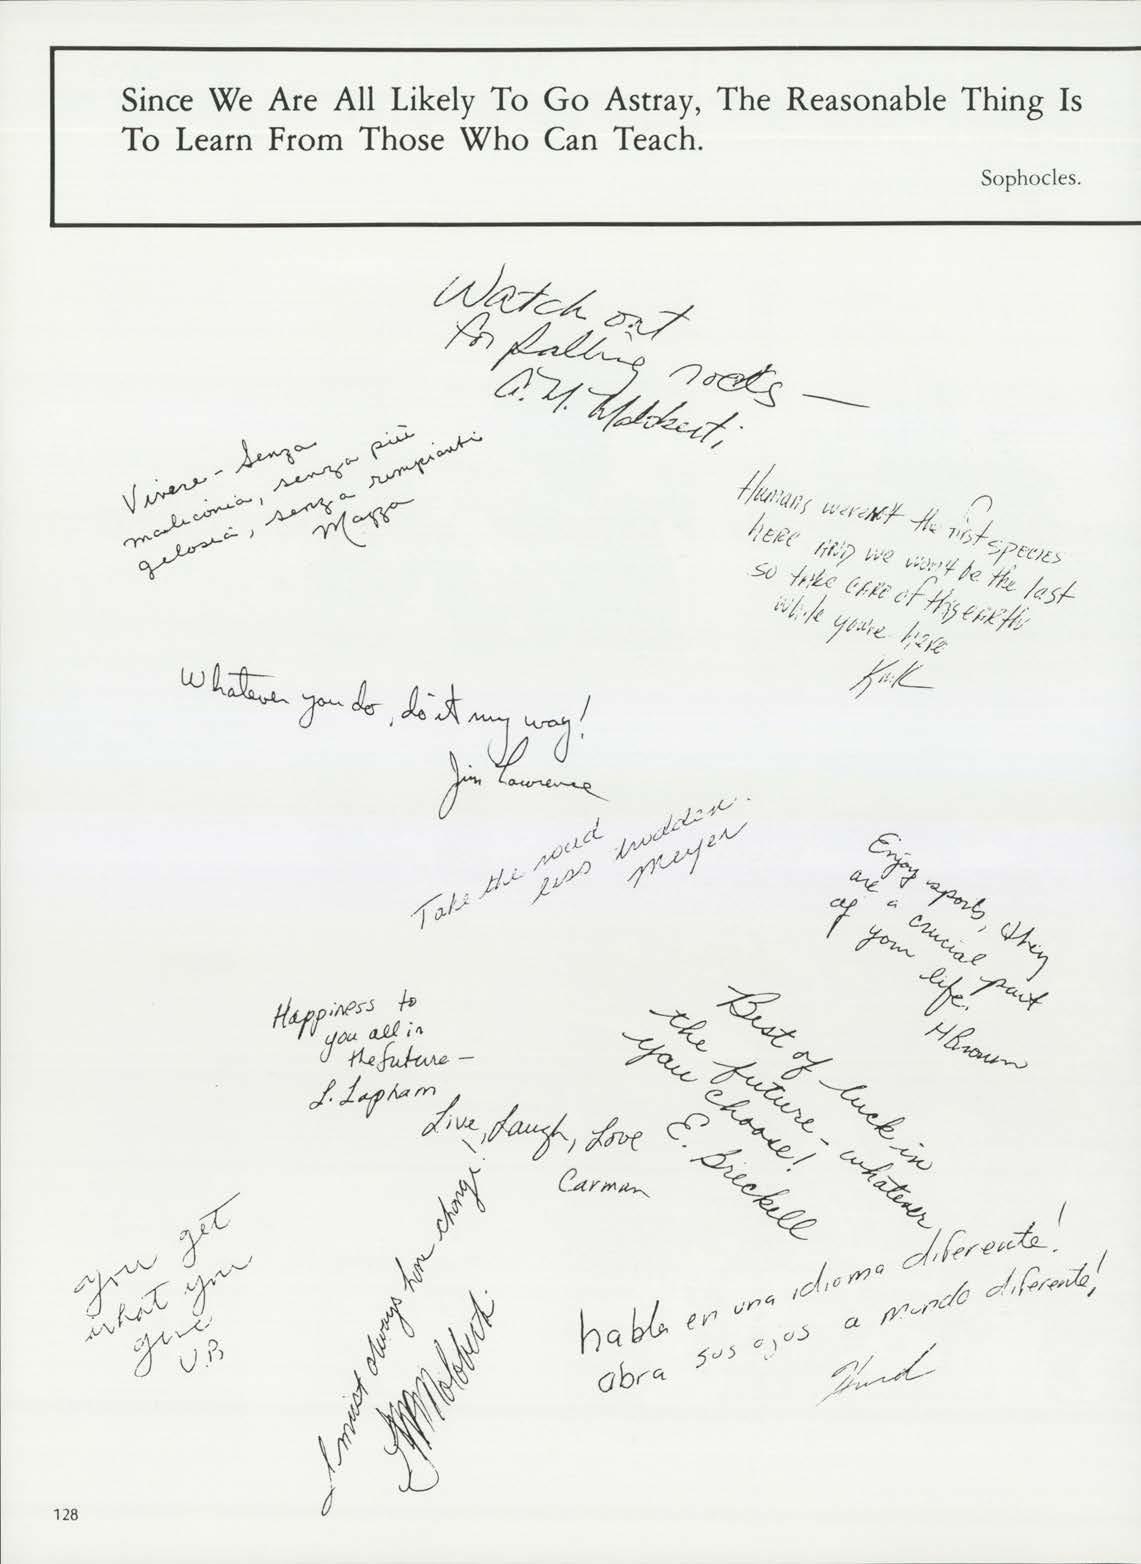 Since We Are All Likely To Go Astray, The Reasonable Thing Is
To Learn From Those Who Can Teach.
Sophocles.
Watch out
for falling rocks —
A. M. Molokerti
Vivere - Senza
maliconia, senza più
gelosia, senza rimpianti
Mazza
Humans weren't the first species
here and we won't be the last
so take care of this earth
while you're here
Kirk
Whatever you do, do it my way!
Jim Lawrence
Take the road
less trodden.
Meyer
Enjoy sports, they
are a crucial part
of your life.
H Brown
Happiness to
you all in
the future —
L. Lapham
Best of luck in
the future - whatever
you choose!
E. Breckell
Live, Laugh, Love
Carman
you get
what you
give
V.B
I must always have change!
habla en una idioma diferente!
abra sus ojos a mundo diferente!
Hurd
128